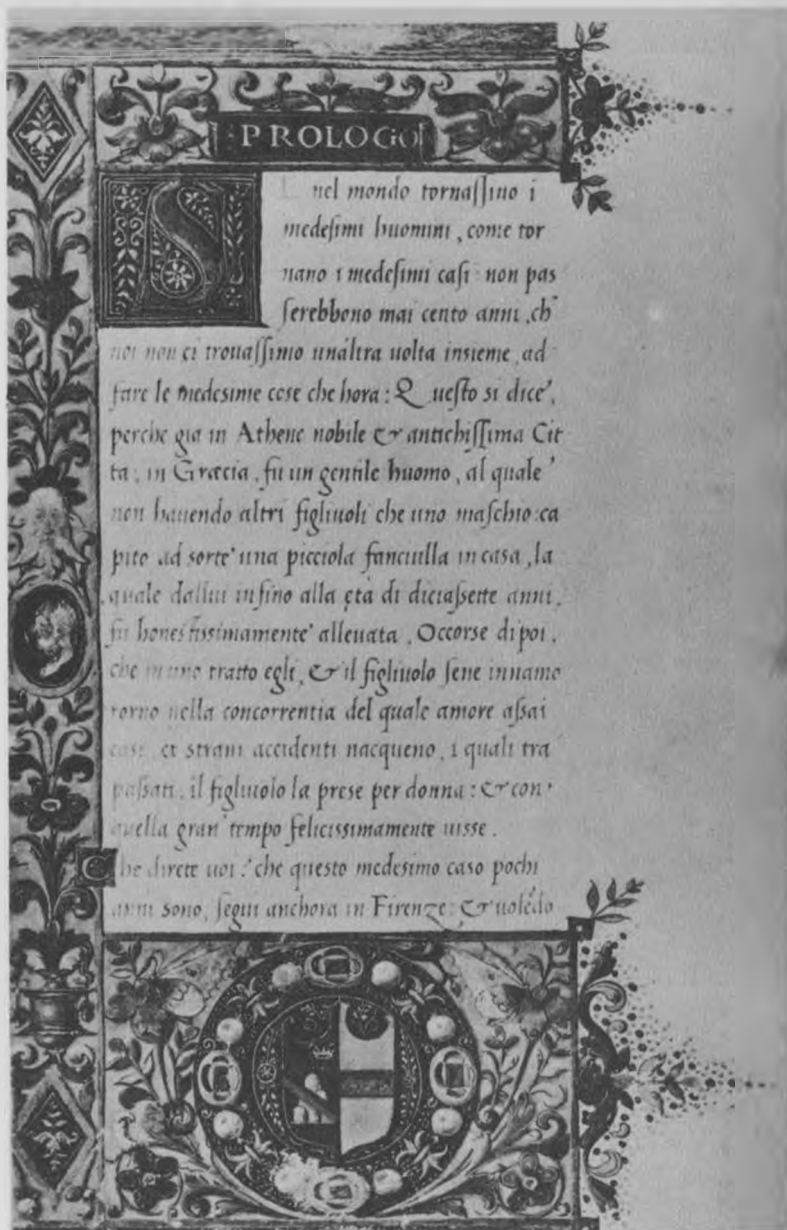 PROLOGO
S E nel mondo tornaſſino i
medeſimi huomini, come tor
nano i medeſimi caſi non paſ
ſerebbono mai cento anni, ch
noi non ci trouaſſimo unáltra uolta insieme, ad
fare le medesime cose che hora: Queſto si dice,
perche gia in Athene nobile & antichiſſima Cit
ta, in Græcia, fu un gentile huomo, al quale
non hauendo altri figliuoli che uno maſchio: ca
pito ad sorte una picciola fanciulla in casa, la
quale dallui inſino alla ętà di diciaſsette anni,
fu honestissimamente alleuata, Occorse dipoi,
che in uno tratto egli, & il figliuolo ſene innamo
rorno nella concorrentia del quale amore aſsai
casi, et strani accidenti nacqueno, i quali tra
paſsati, il figliuolo la prese per donna: & con
quella gran tempo felicissimamente uisse.
Che direte uoi? che questo medesimo caso pochi
anni sono, ſegui anchora in Firenze: & uolẽdo